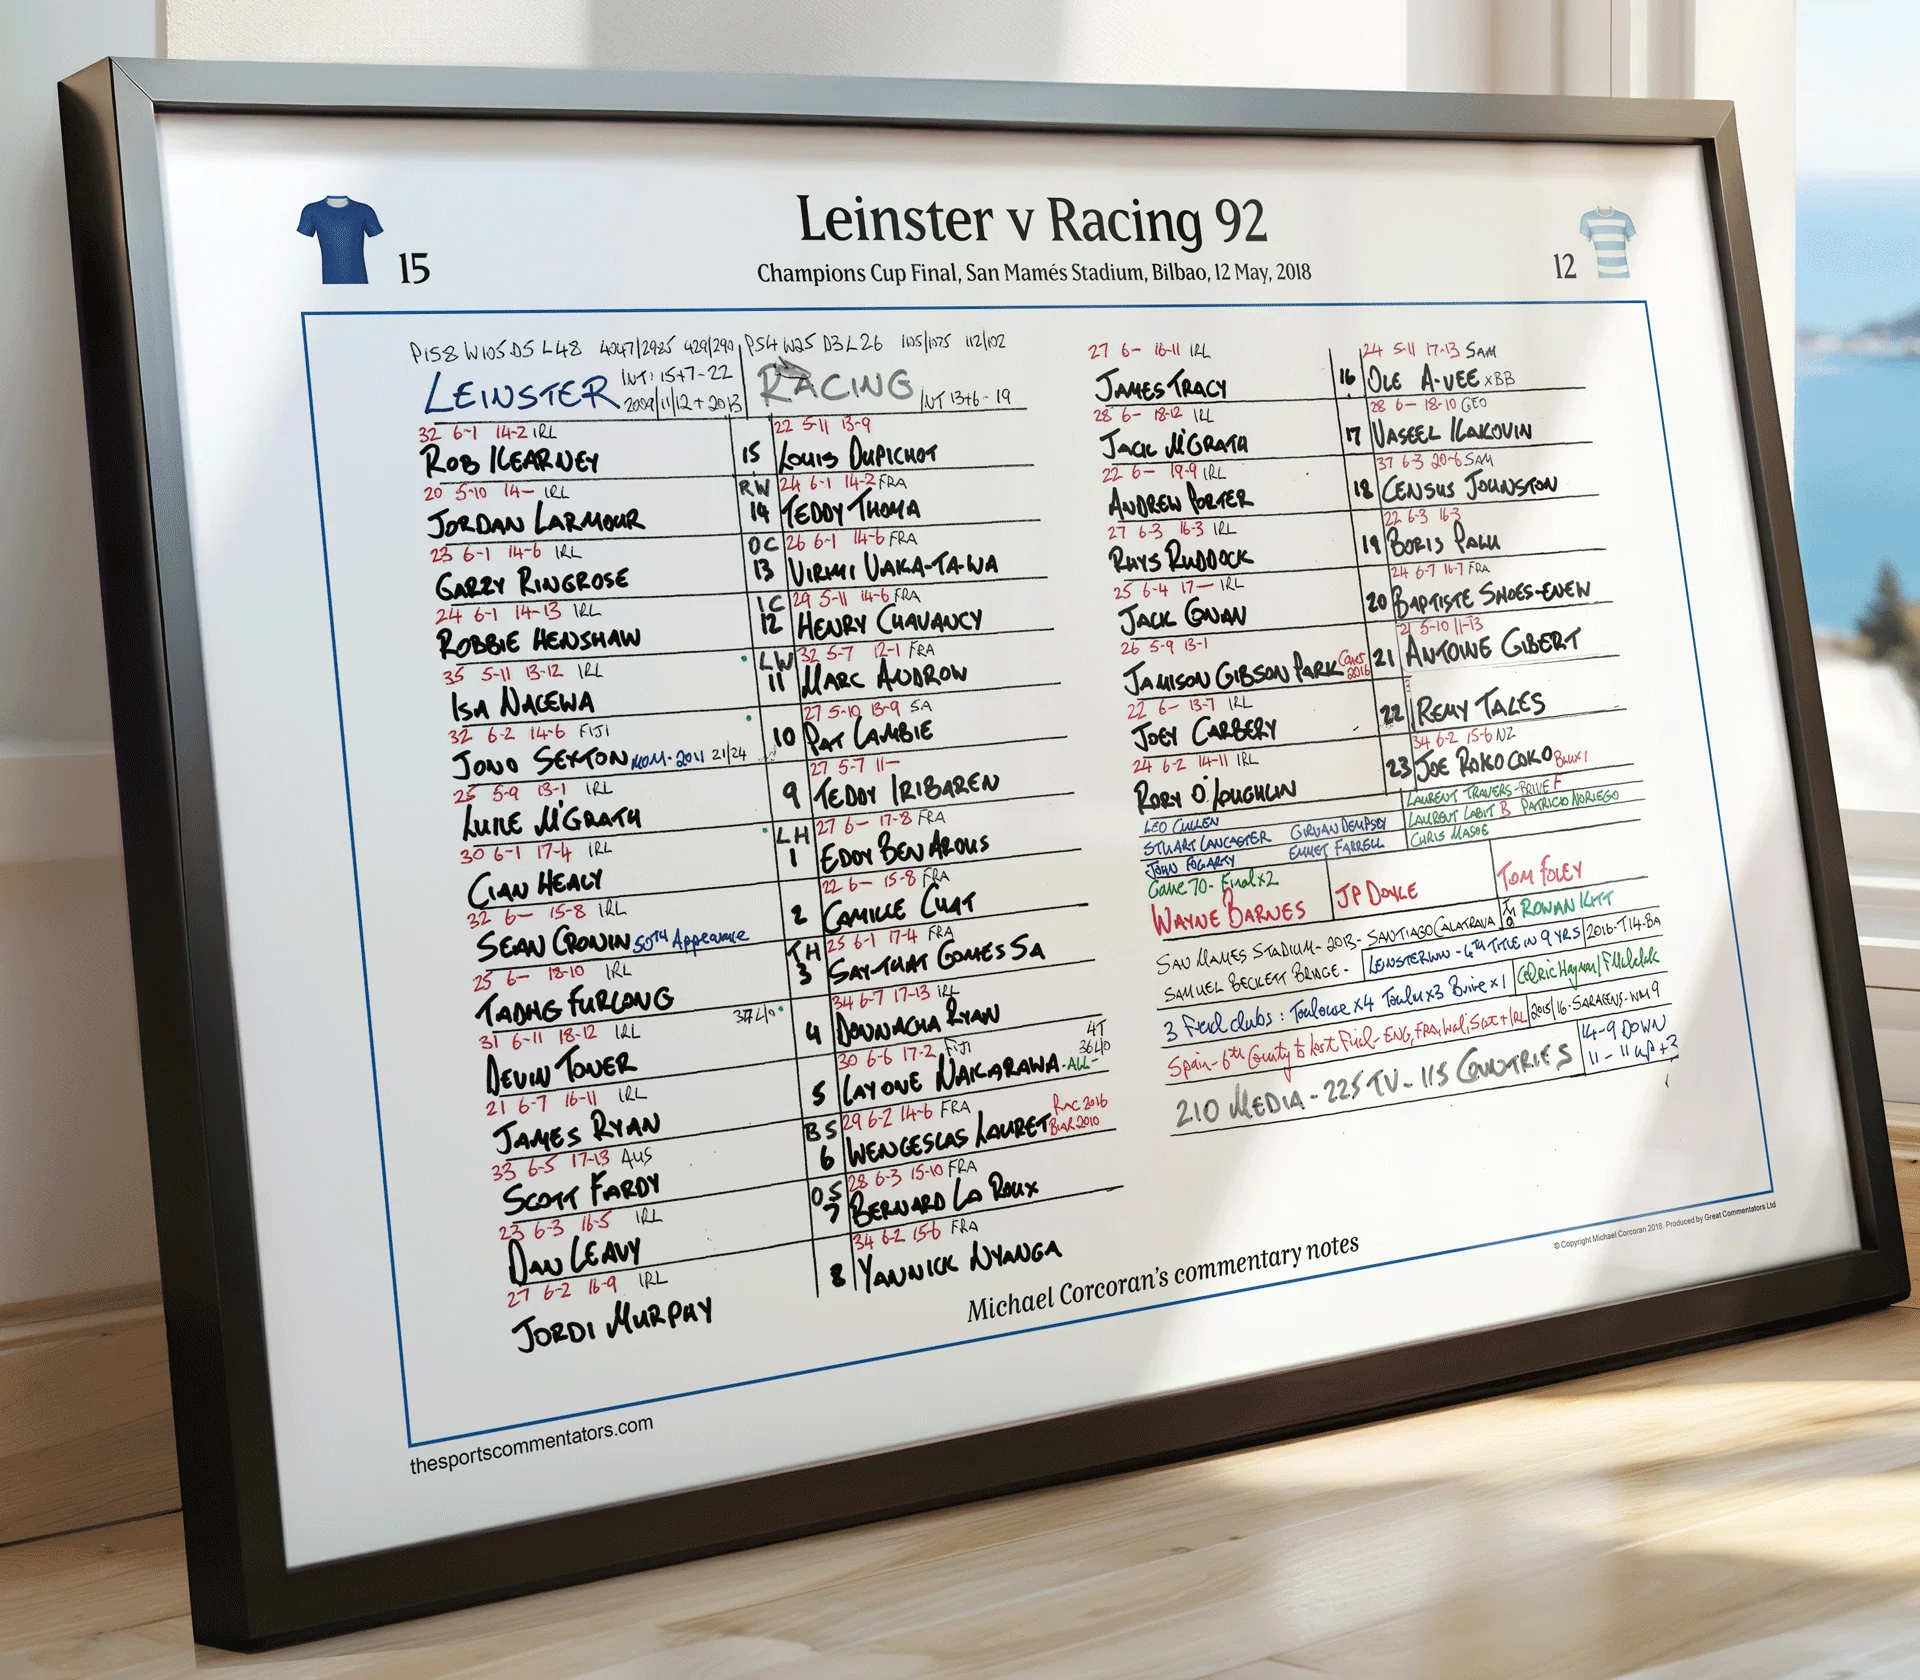 Leinster v Racing 92
Champions Cup Final, San Mamés Stadium, Bilbao, 12 May, 2018
15
12
P158 W105 D5 L48 4047/2985 429/290
LEINSTER INT: 15+7-22
2009/11/12 + 2013
P54 W25 D3 L26 1105/1075 112/102
RACING INT 13+6-19
32 6-1 14-2 IRL
ROB KEARNEY
15
22 5-11 13-9
LOUIS DUPICHOT
20 5-10 14- IRL
JORDAN LARMOUR
RW
14
24 6-1 14-2 FRA
TEDDY THOMA
23 6-1 14-6 IRL
GARRY RINGROSE
OC
13
26 6-1 14-6 FRA
VIRIMI VAKA-TA-WA
24 6-1 14-13 IRL
ROBBIE HENSHAW
IC
12
29 5-11 14-6 FRA
HENRY CHAVANCY
35 5-11 13-12 IRL
ISA NACEWA
LW
11
32 5-7 12-1 FRA
MARC ANDROW
32 6-2 14-6 FIJI
JONO SEXTON MOM-2011 21/24
10
27 5-10 13-9 SA
PAT LAMBIE
25 5-9 13-1 IRL
LUKE McGRATH
9
27 5-7 11-
TEDDY IRIBAREN
30 6-1 17-4 IRL
CIAN HEALY
LH
1
27 6- 17-8 FRA
EDDY BEN AROUS
32 6- 15-8 IRL
SEAN CRONIN 50TH Appearance
2
22 6- 15-8 FRA
CAMILLE CHAT
25 6- 18-10 IRL
TADHG FURLONG
TH
3
25 6-1 17-4 FRA
SAY-THAT GOMES SA
31 6-11 18-12 IRL
DEVIN TONER
37L/O
4
34 6-7 17-13 IRL
DONNACHA RYAN
21 6-7 16-11 IRL
JAMES RYAN
5
30 6-6 17-2 FIJI
4T
36L/O
LAYONE NAKARAWA-ALL-
33 6-5 17-13 AUS
SCOTT FARDY
BS
6
29 6-2 14-6 FRA
WENGESLAS LAURET RAC 2016
BIAR 2010
23 6-3 16-5 IRL
DAN LEAVY
OS
7
28 6-3 15-10 FRA
BERNARD LA ROUX
27 6-2 16-9 IRL
JORDI MURPHY
8
34 6-2 15-6 FRA
YANNICK NYANGA
27 6- 16-11 IRL
JAMES TRACY
16
24 5-11 17-13 SAM
OLE A-VEE xBB
28 6- 18-12 IRL
JACK McGRATH
17
28 6- 18-10 GEO
VASEEL KAKOVIN
22 6- 19-9 IRL
ANDREW PORTER
18
37 6-3 20-6 SAM
CENSUS JOHNSTON
27 6-3 16-3 IRL
RHYS RUDDOCK
19
22 6-3 16-3
BORIS PALU
25 6-4 17- IRL
JACK CONAN
20
24 6-7 16-7 FRA
BAPTISTE SHOES-ENEW
26 5-9 13-1
JAMISON GIBSON PARK Canes 2016
21
21 5-10 11-13
ANTOINE GIBERT
22 6- 13-7 IRL
JOEY CARBERY
22
REMY TALES
24 6-2 14-11 IRL
RORY O'LOUGHLIN
23
34 6-2 15-6 NZ
JOE ROKOCOKO
LEO CULLEN
STUART LANCASTER GIRVAN DEMPSEY
JOHN FOGARTY EMMET FARRELL
LAURENT TRAVERS-BRIVE F
LAURENT LABIT B PATRICIO NORIEGO
CHRIS MASOE
Game 70- Final x2
WAYNE BARNES
JP DOYLE
TOM FOLEY
TMO ROWAN KITT
SAN MAMES STADIUM-2013-SANTIAGO CALATRAVA
SAMUEL BECKETT BRIDGE-
LEINSTER WIN-4TH TITLE IN 9 YRS
2016-T14-BA
3 Fred clubs: Toulouse x4 Toulon x3 Brive x1
2015/16-SARACENS-WM9
Spain-6th Country to host Final-ENG, FRA, Wal, Scot + IRL
14-9 DOWN
11-11 UP+3
210 MEDIA-225 TV-115 COUNTRIES
Michael Corcoran's commentary notes
© Copyright Michael Corcoran 2018. Produced by Great Commentators Ltd
thesportscommentators.com